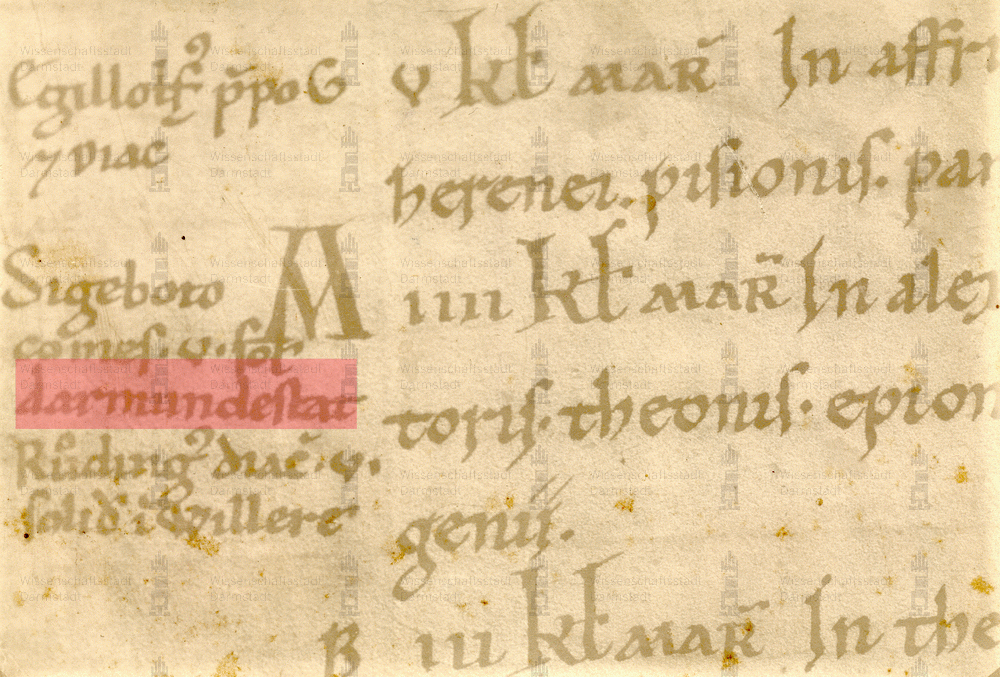 Egillolf' p̄po G
⁊ diac
Sigeboto
comes · v · sol
darmundestat
Růding' diac̄ · v ·
solid̄ ī Willere
v kł mar̄ In affri
herenei . pisionis . par
A iiii kł mar̄ In alex
toris · theonis · epion
genii .
B iii kł mar̄ In the
Wissenschaftsstadt
Darmstadt